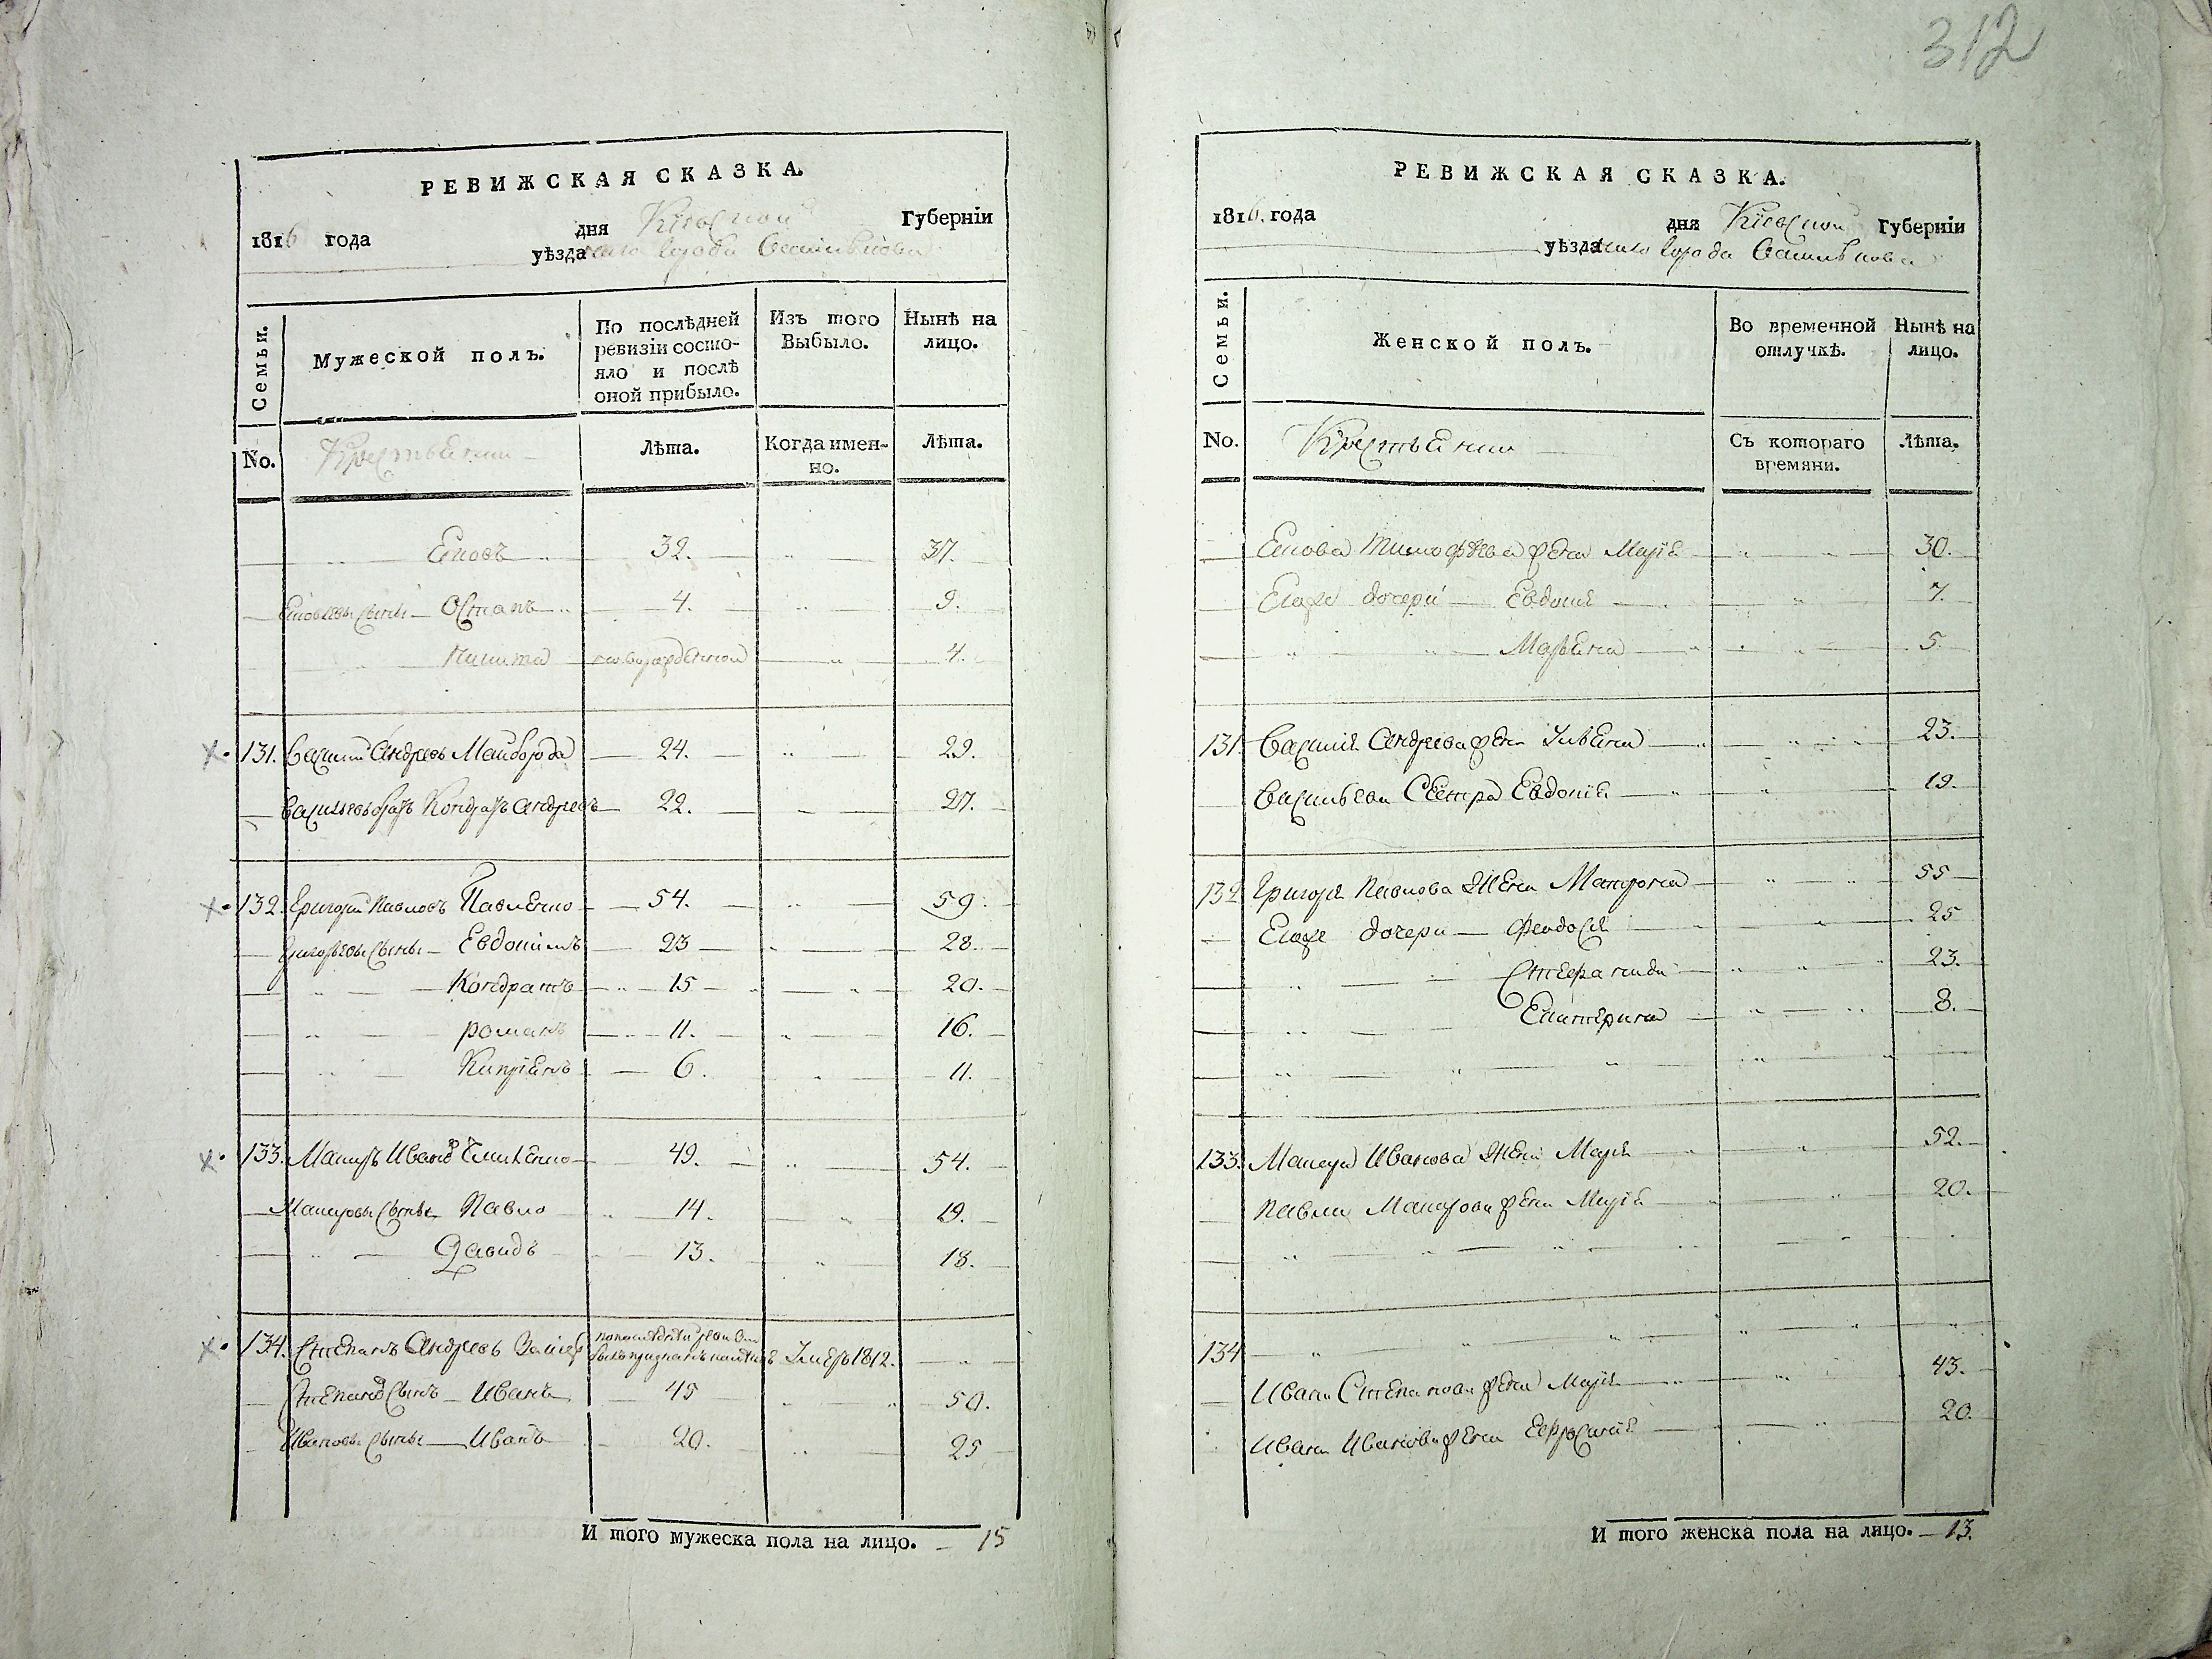 312
РЕВИЖСКАЯ СКАЗКА.
1816 года дня Кіевской Губерніи
уѣзда города Василькова
Семьи.
Мужеской полъ.
По послѣдней ревизіи состо-
яло и послѣ оной прибыло.
Изъ того Выбыло.
Нынѣ на лицо.
No. Крестьяне Лѣта. Когда имен-
но. Лѣта.
32. 37.
сынъ Остапъ 4. 9.
Никита новорожденной 4.
131. Василий Андреевъ Майборода 24. 29.
Васильевъ братъ Кондратъ Андреевъ 22. 27.
132. Григорий Павловъ Павленко 54. 59.
Григорьевы сыны Евдокимъ 23 28.
Кондратъ 15 20.
романъ 11. 16.
Кипріянъ 6. 11.
133. Макаръ Ивановъ 49. 54.
Макаровы сыны Павло 14. 19.
Давидъ 13. 18.
134. Степанъ Андреевъ Умеръ 1812.
Степановъ сынъ Иванъ 45 50.
Ивановъ сынъ Иванъ 20. 25
И того мужеска пола на лицо. 15
РЕВИЖСКАЯ СКАЗКА.
1816. года дня Кіевской Губерніи
уѣзда города Василькова
Семьи.
Женской полъ.
Во временной отлучкѣ.
Нынѣ на лицо.
No. Крестьяне Съ котораго
времяни. Лѣта.
Тимофѣева жена Марія 30.
Егоже дочери Евдокія 7.
Марьяна 5.
131 Василія Андреева жена Ульяна 23.
Васильева Сестра Евдокія 19.
132 Григорія Павлова жена Матрона 55
Егоже дочери Феодосія 25
Степанида 23.
Екатерина 8.
133. Макара Иванова жена Марія 52.
Павла Макарова жена Марія 20.
134
Ивана Степанова жена Марія 43.
Ивана Иванова жена Евфросинія 20.
И того женска пола на лицо. 13.